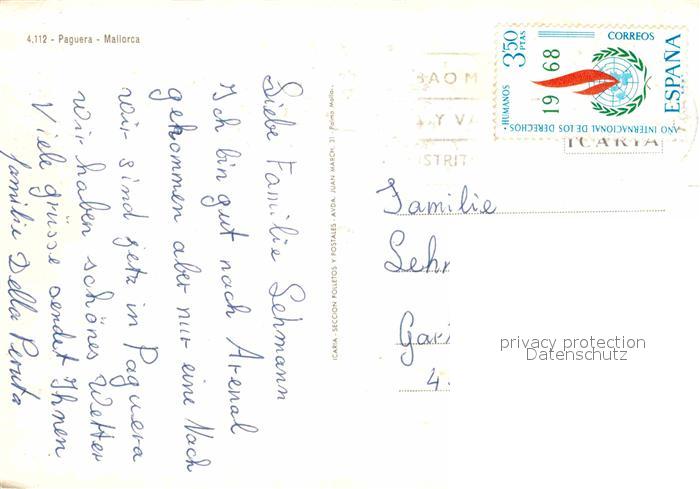 4.112 - Paguera - Mallorca
Liebe Familie Lehmann
Ich bin gut nach Arenal
gekommen aber nur eine Nach
wir sind jetz in Paguera
wir haben schönes Wetter
Viele grüsse sendet Ihnen
familie Della Peruta
ICARIA - SECCION FOLLETOS Y POSTALES - AVDA. JUAN MARCH, 31 - Palma Mallor.
CORREOS
ESPAÑA
3'50 PTAS
1968
AÑO INTERNACIONAL DE LOS DERECHOS HUMANOS
ICARIA
Familie
Lehr
Gari
4.
privacy protection
Datenschutz